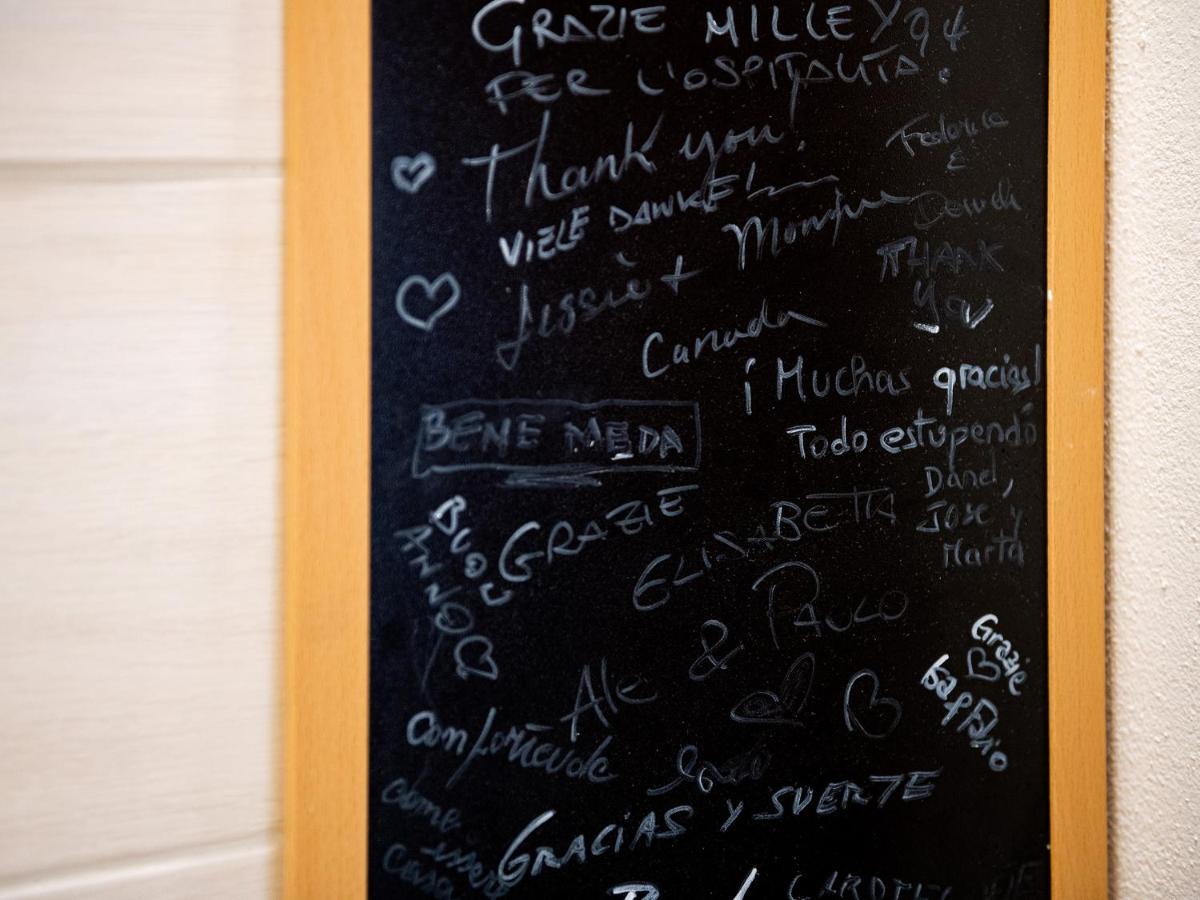 GRAZIE MILLE
PER L'OSPITALITA'.
Thank you!
VIELE DANKE!
Monique
Canada
Federica
&
THANK
You
¡Muchas gracias!
Todo estupendo
Daniel,
Jose y
Marta
BENE MEDA
BUON
ANNO
GRAZIE
ELISABETTA
& PAULO
Ale
Grazie
come
essere
casa
GRACIAS Y SUERTE